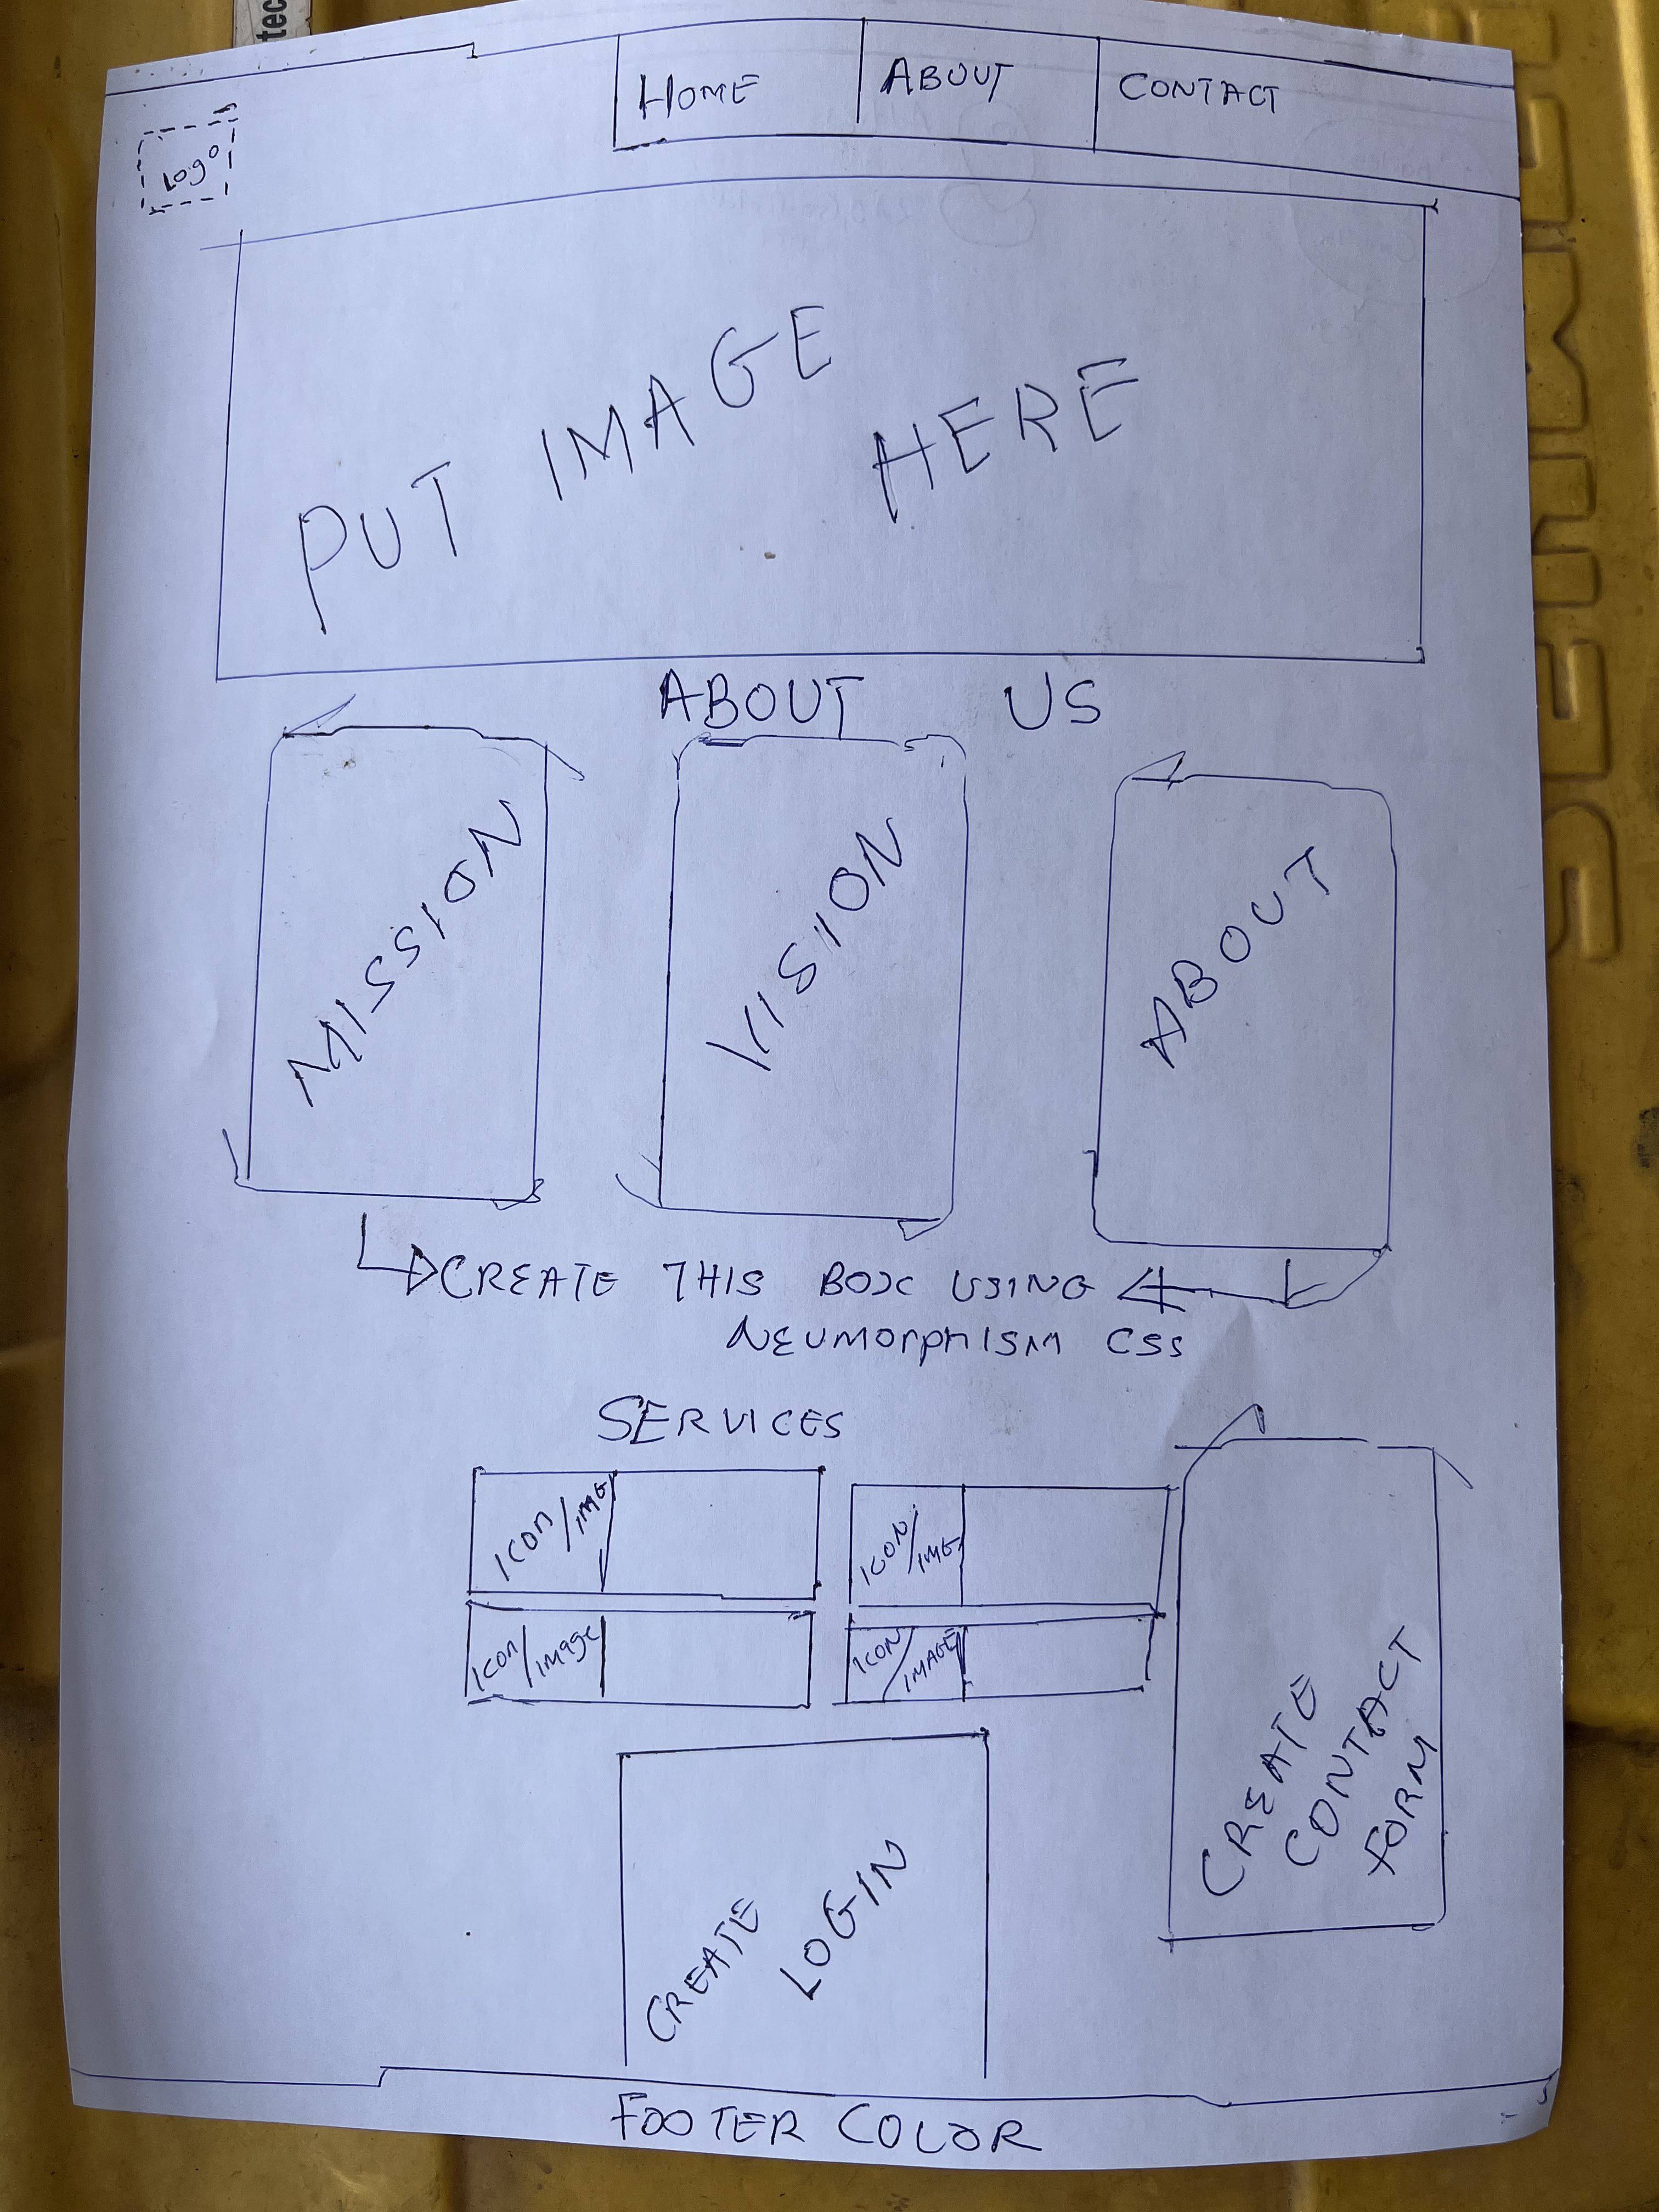 tec
HOME ABOUT CONTACT
Logo
PUT IMAGE HERE
ABOUT US
MISSION
VISION
ABOUT
CREATE THIS BOX USING
NEUMORPHISM CSS
SERVICES
ICON/IMG
ICON/IMG
ICON/Image
ICON/IMAGE
CREATE
CONTACT
FORM
CREATE
LOGIN
FOOTER COLOR